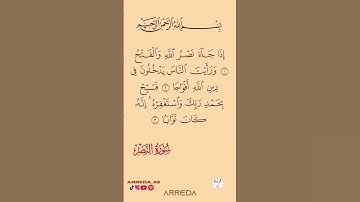 بِسْمِ ٱللَّهِ ٱلرَّحْمَٰنِ ٱلرَّحِيمِ
إِذَا جَآءَ نَصْرُ ٱللَّهِ وَٱلْفَتْحُ
١ وَرَأَيْتَ ٱلنَّاسَ يَدْخُلُونَ فِى
دِينِ ٱللَّهِ أَفْوَاجًا ٢ فَسَبِّحْ
بِحَمْدِ رَبِّكَ وَٱسْتَغْفِرْهُ ۚ إِنَّهُۥ
كَانَ تَوَّابًۢا ٣
سُورَةُ النَّصْرِ
ARREDA_02
ARREDA